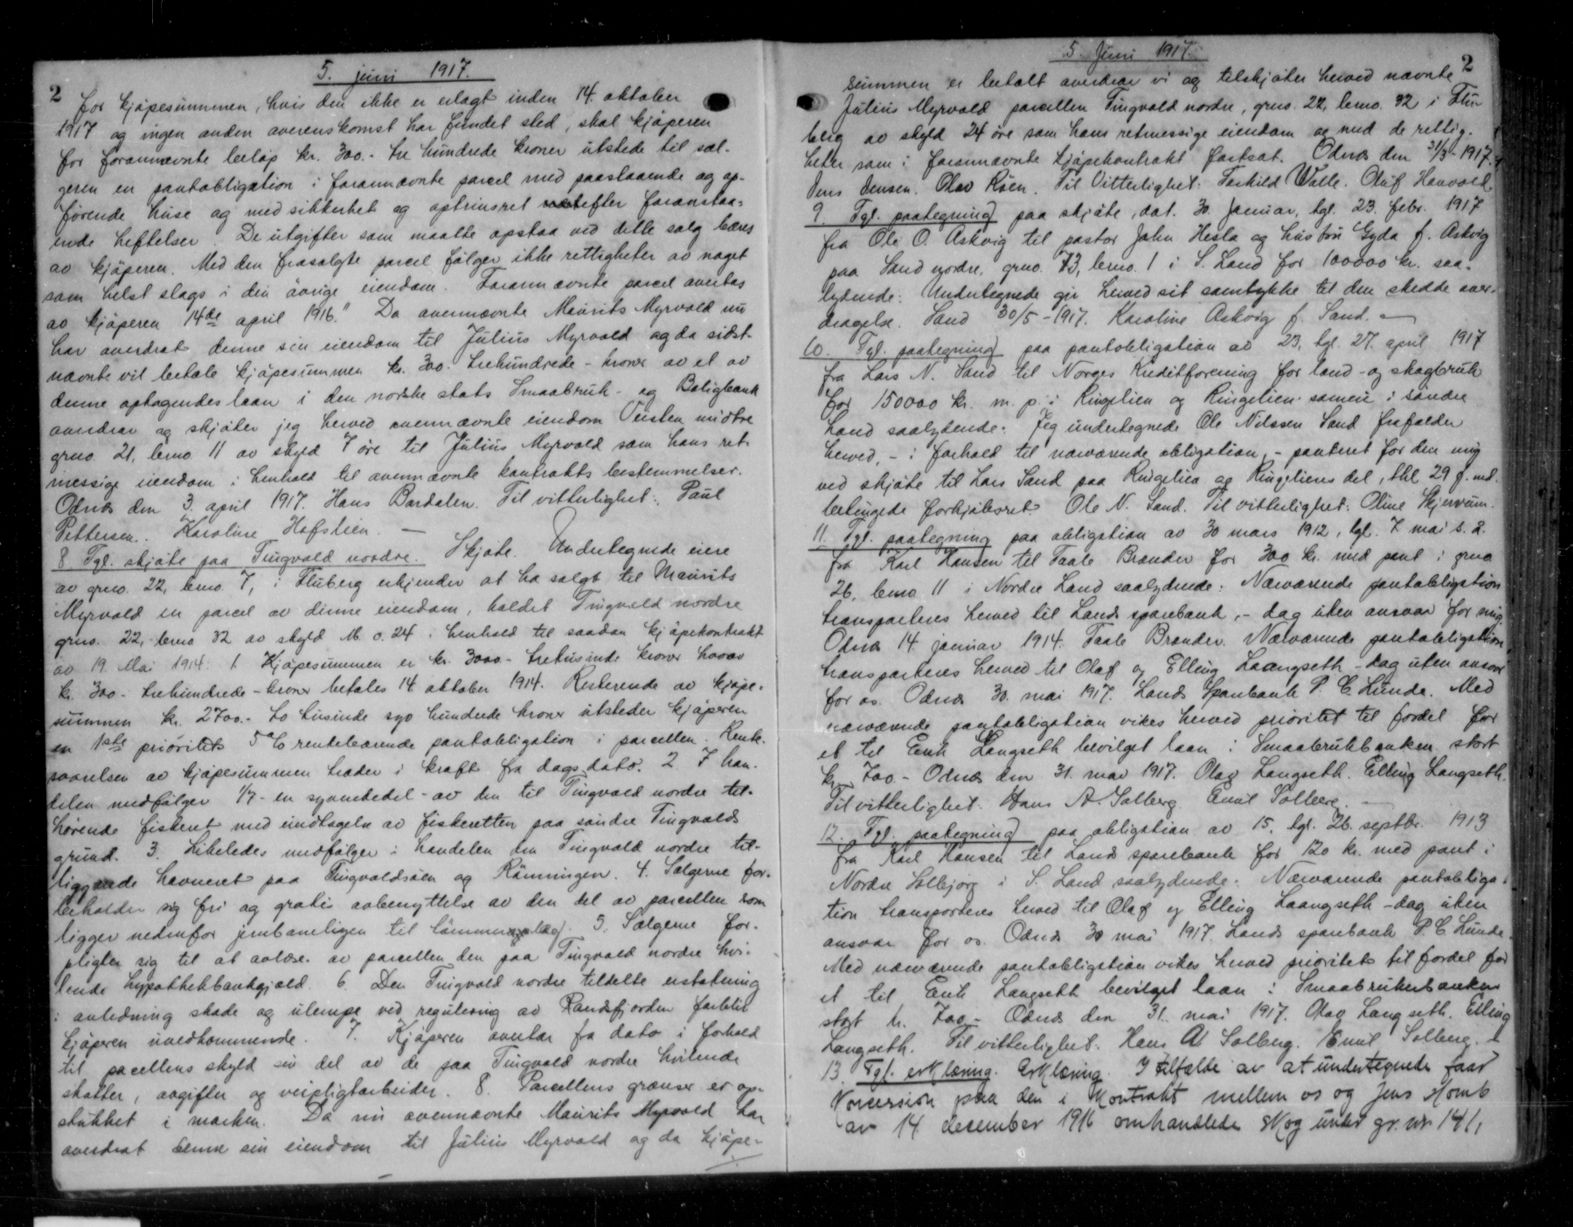 5. juni 1917.
2
for kjøpesummen, hvis den ikke er erlagt inden 14 oktober
1917 og ingen anden overenskomst har fundet sted, skal kjøperen
for forannævnte beløp kr. 300.- tre hundrede kroner utstede til sæl-
geren en pantobligation i forannævnte parcel med paastaaende og op-
førende huse og med sikkerhet og optrinsret efter foranstaa-
ende heftelser. De utgifter som maatte opstaa ved dette salg bæres
av kjøperen. Med den frasolgte parcel følger ikke rettigheter av noget
som helst slags i den øvrige eiendom. Forannævnte parcel overtas
av kjøperen 14de april 1916." Da ovennævnte Maurits Myrvold nu
har overdrat denne sin eiendom til Julius Myrvold og da sidst-
nævnte vil betale kjøpesummen kr. 300. trehundrede - kroner av et av
denne optagendes laan i den norske stats Smaabruk- og Boligbank
overdrar og skjøter jeg herved ovennævnte eiendom Teisten midtre
grno. 21, brno 11 av skyld 7 øre til Julius Myrvold som hans ret-
messige eiendom i henhold til ovennævnte kontrakts bestemmelser.
Odnes den 3. april 1917. Hans Bardalen. Til vitterlighet: Paul
Pettersen. Karoline Hofslien. —
8. Tgl. skjøte paa Tingvold nordre. Skjøte. Undertegnede eiere
av grno. 22, brno 7, i Fluberg erkjender at ha solgt til Maurits
Myrvold en parcel av denne eiendom, kaldet Tingvold nordre
grno. 22, brno 32 av skyld M. 0.24 i henhold til saadan kjøpekontrakt
av 19. Mai 1914: 1 Kjøpesummen er kr. 3000 - tretusinde kroner hvorav
kr. 300 - trehundrede - kroner betales 14 oktober 1914. Resterende av kjøpe-
summen kr. 2700.- to tusinde syv hundrede kroner utsteder kjøperen
en 1ste prioritets 5 % rentebærende pantobligation i parcellen. Rente-
svarelsen av kjøpesummen træder i kraft fra dags dato. 2 I han-
delen medfølger 1/7 - en syvendedel - av den til Tingvold nordre til-
hørende fiskeret med undtagelse av fiskeretten paa søndre Tingvolds
grund. 3. Likeledes medfølger i handelen den Tingvold nordre til-
liggende havneret paa Tingvoldsøen og Rønningen. 4. Sælgerne for-
beholder sig fri og gratis avbenyttelse av den del av parcellen som
ligger nedenfor jernbanelinjen til tømmeroplag. 5. Sælgerne for-
pligter sig til at avløse av parcellen den paa Tingvold nordre hvi-
lende hypothekbankgjæld. 6. Den Tingvold nordre tildelte erstatning
i anledning skade og ulempe ved regulering av Randsfjorden forblir
kjøperen uvedkommende. 7. Kjøperen overtar fra dato i forhold
til parcellens skyld sin del av de paa Tingvold nordre hvilende
skatter, avgifter og veipligtarbeider. 8. Parcellens grænser er op-
stukket i marken. Da nu ovennævnte Maurits Myrvold har
overdrat denne sin eiendom til Julius Myrvold og da kjøpe-
5. Juni 1917.
2
summen er betalt overdrar vi og tilskjøter herved nævnte
Julius Myrvold parcellen Tingvold nordre, grno. 22, brno. 32 i Flu-
berg av skyld 24 øre som hans retmessige eiendom og med de rettig-
heter som i foranævnte kjøpekontrakt fastsat. Odnes den 31/3-1917.
Jens Jensen. Olav Røen. Til Vitterlighet: Torhild Walle. Oluf Haavold.
9. Tgl. paategning paa skjøte, dat. 30. januar, tgl. 23. febr. 1917
fra Ole O. Askvig til pastor John Hesla og hustru Gyda f. Askvig
paa Sand nordre, grno. 73, brno. 1 i S. Land for 100000 kr. saa-
lydende: Undertegnede gir herved sit samtykke til den skedde over-
dragelse. Sand 30/5-1917. Karoline Askvig f. Sand. —
10. Tgl. paategning paa pantobligation av 23. tgl. 27. april 1917
fra Lars N. Sand til Norges Kreditforening for land- og skogbruk
for 150000 kr. m. p. i Ringelien og Ringelien sameie i søndre
Land saalydende: Jeg undertegnede Ole Nilssen Sand frafalder
herved, - i forhold til nærværende obligation, - panteret for den mig
ved skjøte til Lars Sand paa Ringelien og Ringeliens del, tbl 29 f. nd.
betingede forkjøbsret Ole N. Sand. Til vitterlighet: Oline Skjervum.
11. Tgl. paategning paa obligation av 30 mars 1912, tgl. 7. mai s. a.
fra Karl Hansen til Taale Brænder for 300 kr. med pant i grno
26, brno. 11 i Nordre Land saalydende: Nærværende pantobligation
transporteres herved til Lands sparebank, - dog uten ansvar for mig.
Odnes 14 januar 1914. Taale Brænder. Nærværende pantobligation
transporteres herved til Olaf og Elling Laangseth - dog uten ansvar
for os. Odnes 30. mai 1917. Lands Sparebank P. C. Lunde. Med
nærværende pantobligation vikes herved prioritet til fordel for
et til Enk Langseth bevilget laan i Smaabrukbanken stort
kr. 700 - Odnes den 31. mai 1917. Olag Langseth. Elling Langseth.
Til vitterlighet. Hans A. Solberg Emil Solberg. —
12. Tgl. paategning paa obligation av 15. tgl. 26. septbr. 1913
fra Karl Hansen til Lands sparebank for 120 kr. med pant i
Nordre Solbjørg i S. Land saalydende: Nærværende pantobliga-
tion transporteres herved til Olaf og Elling Laangseth - dog uten
ansvar for os. Odnes 30 mai 1917. Lands sparebank P. C. Lunde.
Med nærværende pantobligation vikes herved prioritet til fordel for
et til Enk Langseth bevilget laan i Smaabrukerbanken
stort kr. 700 - Odnes den 31. mai 1917. Olag Langseth. Elling
Langseth. Til vitterlighet. Hans A. Solberg. Emil Solberg. —
13. Tgl. erklæring. Erklæring. I tilfælde av at undertegnede faar
koncession paa den i kontrakt mellem os og Jens Homb
av 14 desember 1916 omhandlede skog under gr. nr. 141,